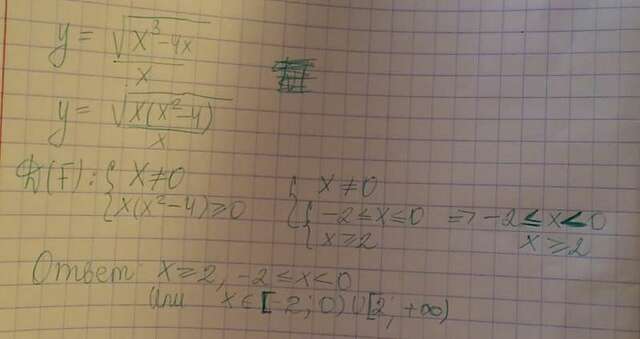 y = √(x³-4x) / x
y = √(x(x²-4)) / x
D(F): { x≠0 { x≠0
{ x(x²-4)≥0 { { -2≤x≤0 => -2≤x<0
{ x≥2 x≥2
Ответ: x≥2, -2≤x<0
или x∈[-2;0)∪[2;+∞)